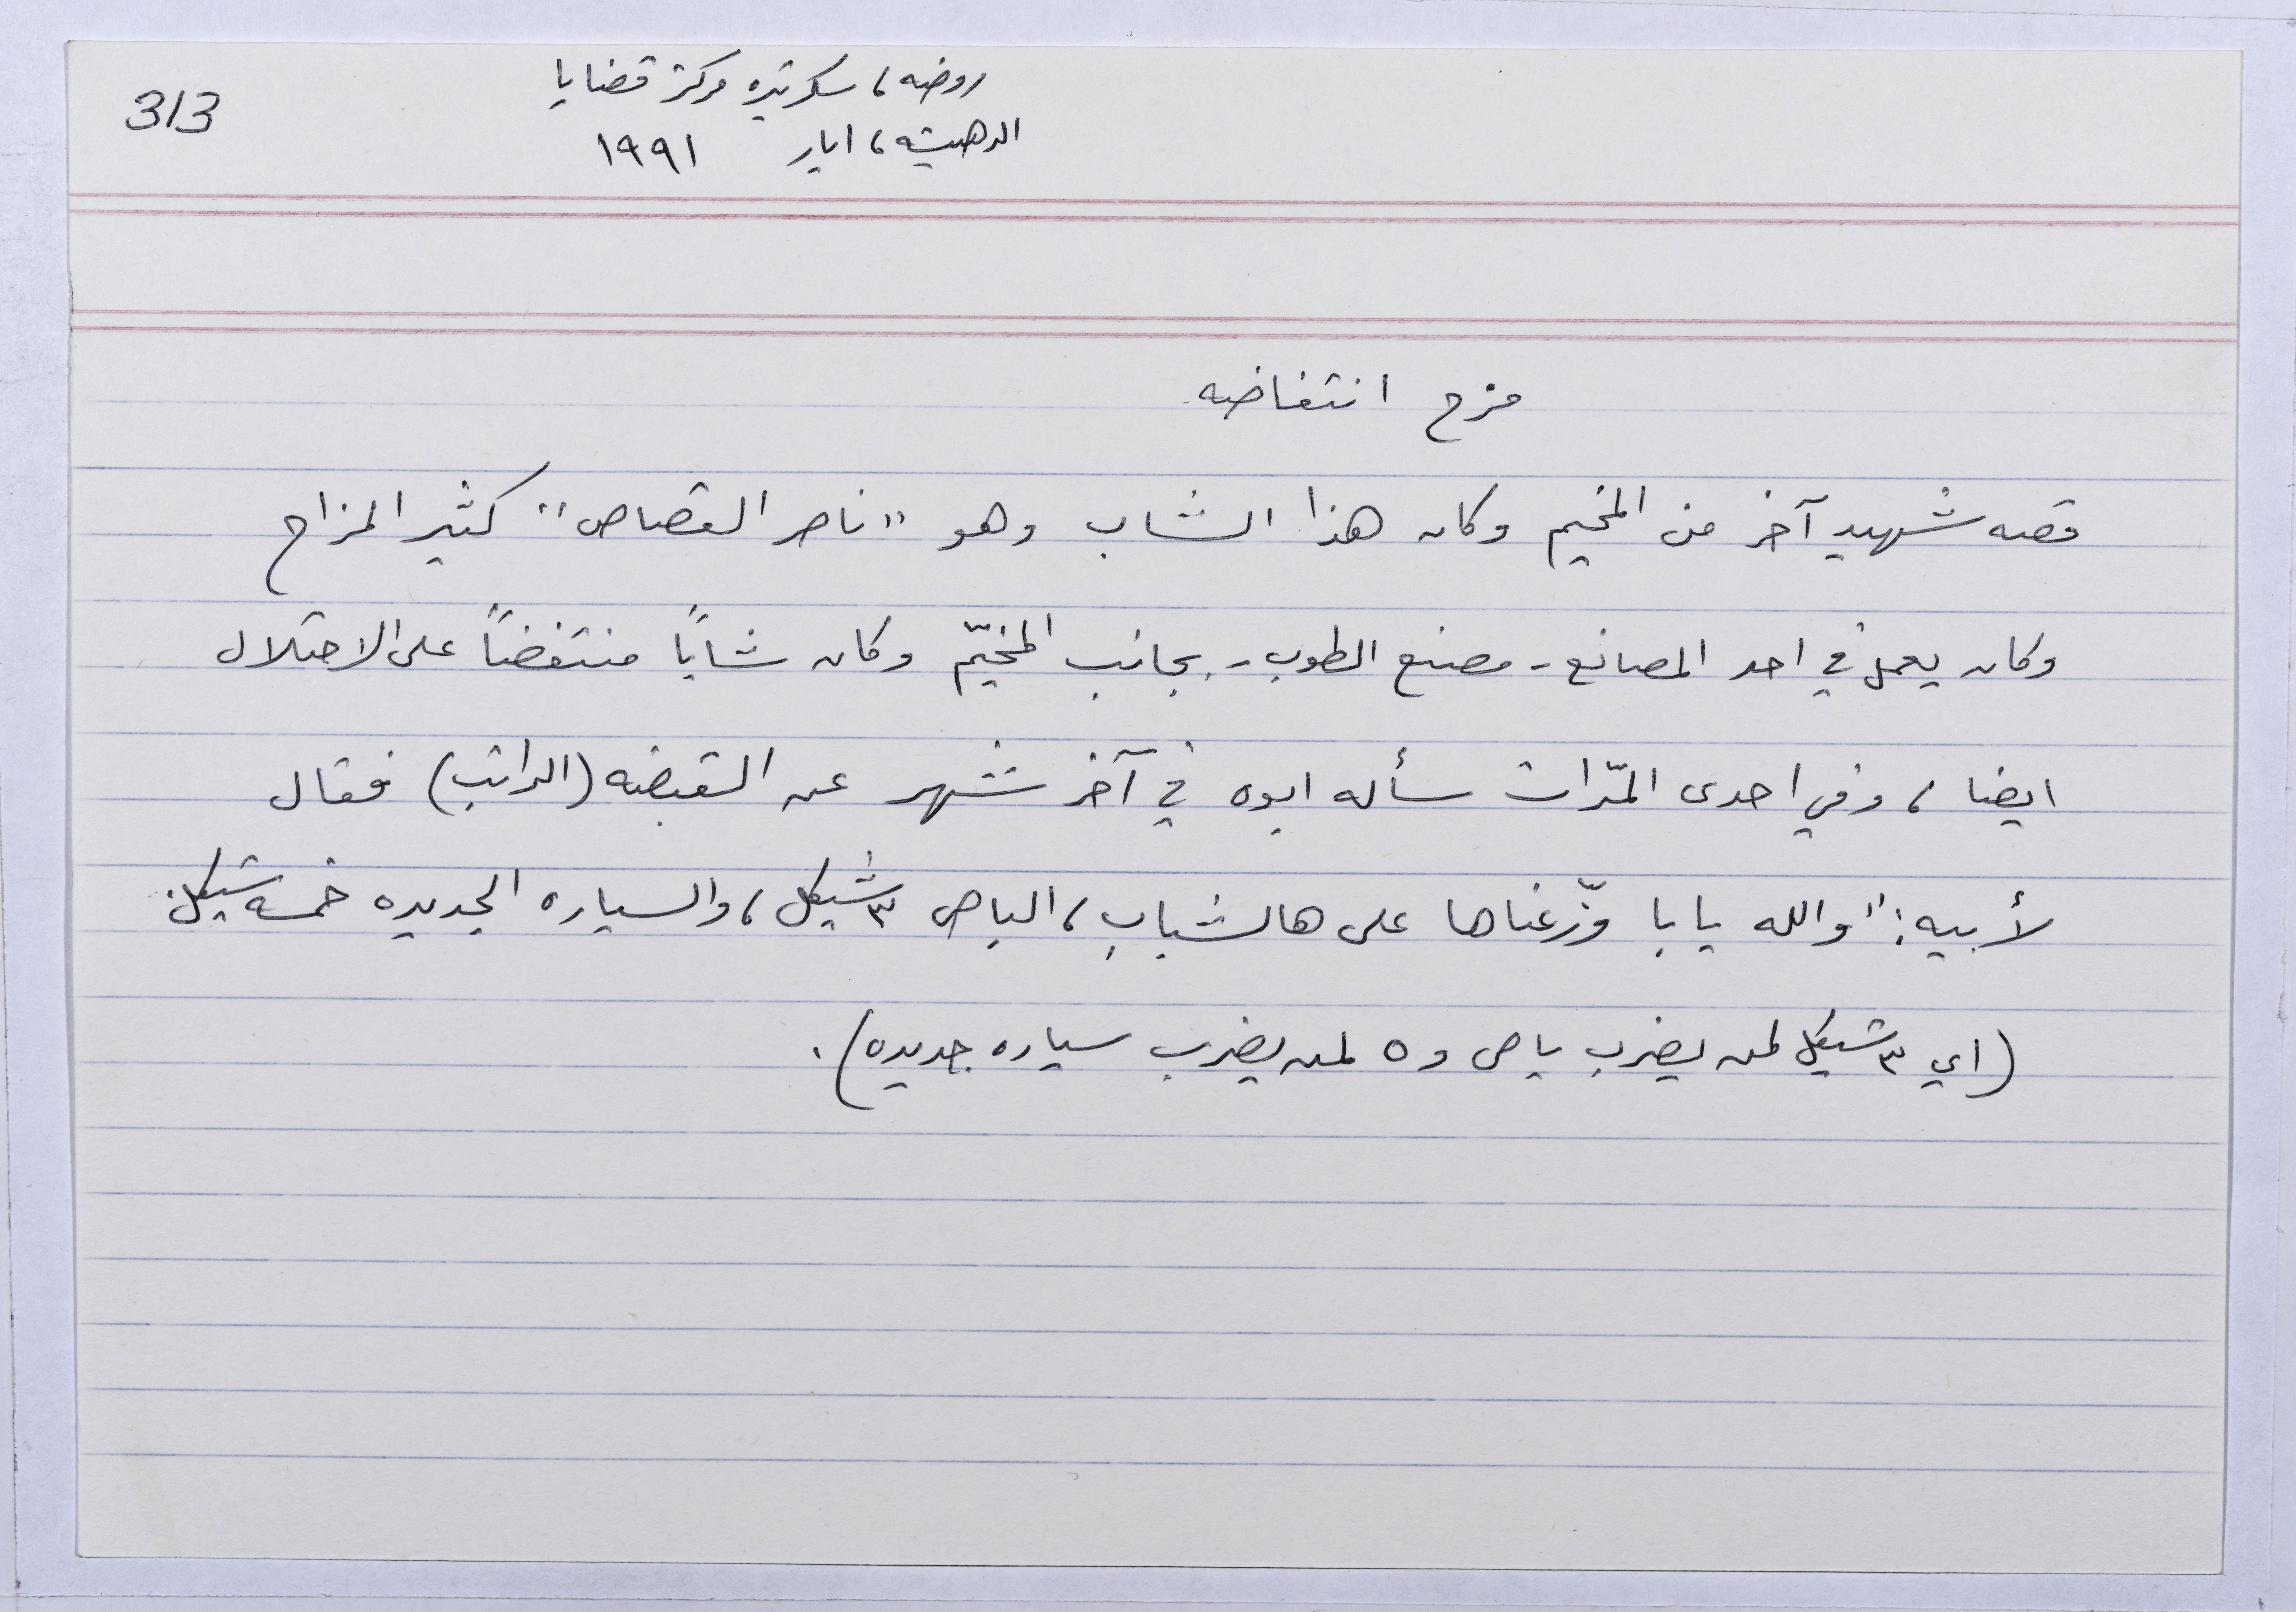 313
روضه، سكرتيره مركز قضايا
الدهيشه، ايار ١٩٩١
مزح انتفاضه
قصه شهيد آخر من المخيم وكان هذا الشاب وهو "ناصر القصاص" كثير المزاح
وكان يعمل في احد المصانع - مصنع الطوب - بجانب المخيّم وكان شابًا منتفضاً على الاحتلال
ايضا، وفي احدى المرّات سأله ابوه في آخر شهر عن القبضه (الراتب) فقال
لأبيه: "والله يابا وزّعناها على هالشباب، الباص ٣ شيكل، والسياره الجديده خمسه شيكل.
(اي ٣ شيكل لمن يضرب باص و ٥ لمن يضرب سياره جديده).